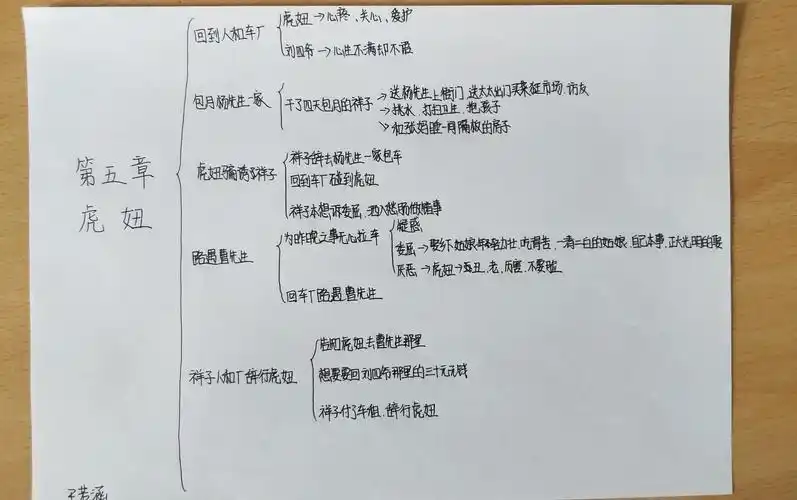 第五章
虎妞
回到人和车厂
虎妞→心疼、关心、爱护
刘四爷→心生不满却不语
包月杨先生一家
干了四天包月的祥子
→送杨先生上衙门 送太太出门买菜逛市场 访友
→挑水、打扫卫生、抱孩子
→和张妈睡一间隔板的房子
虎妞骗诱了祥子
祥子辞去杨先生一家包车
回到车厂碰到虎妞
祥子本想诉委屈，酒入愁肠做错事
路遇曹先生
为昨晚之事无心拉车
疑惑
委屈→娶个姑娘 吃得苦、一清二白的姑娘、自己本事、正大光明的娶
厌恶→虎妞→丑、老、厉害、不要脸
回车厂路遇曹先生
祥子人和厂辞行虎妞
告知虎妞去曹先生那里
想要要回刘四爷那里的三十元钱
祥子付了车租，辞行虎妞